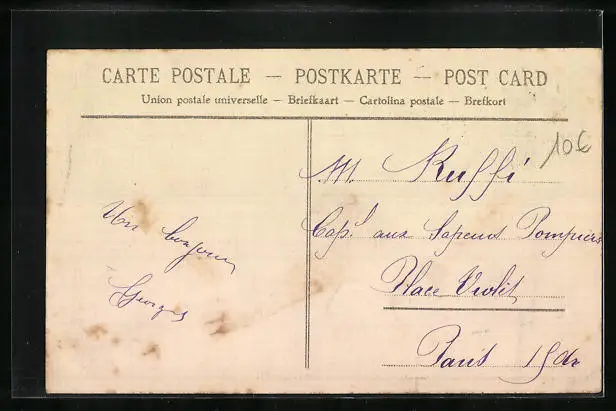 CARTE POSTALE — POSTKARTE — POST CARD
Union postale universelle — Briefkaart — Cartolina postale — Brefkort
10€
M. Ruffi
Cap.l aux Sapeurs Pompiers
Place Violet
Paris 15e
Un bonjour
Georges